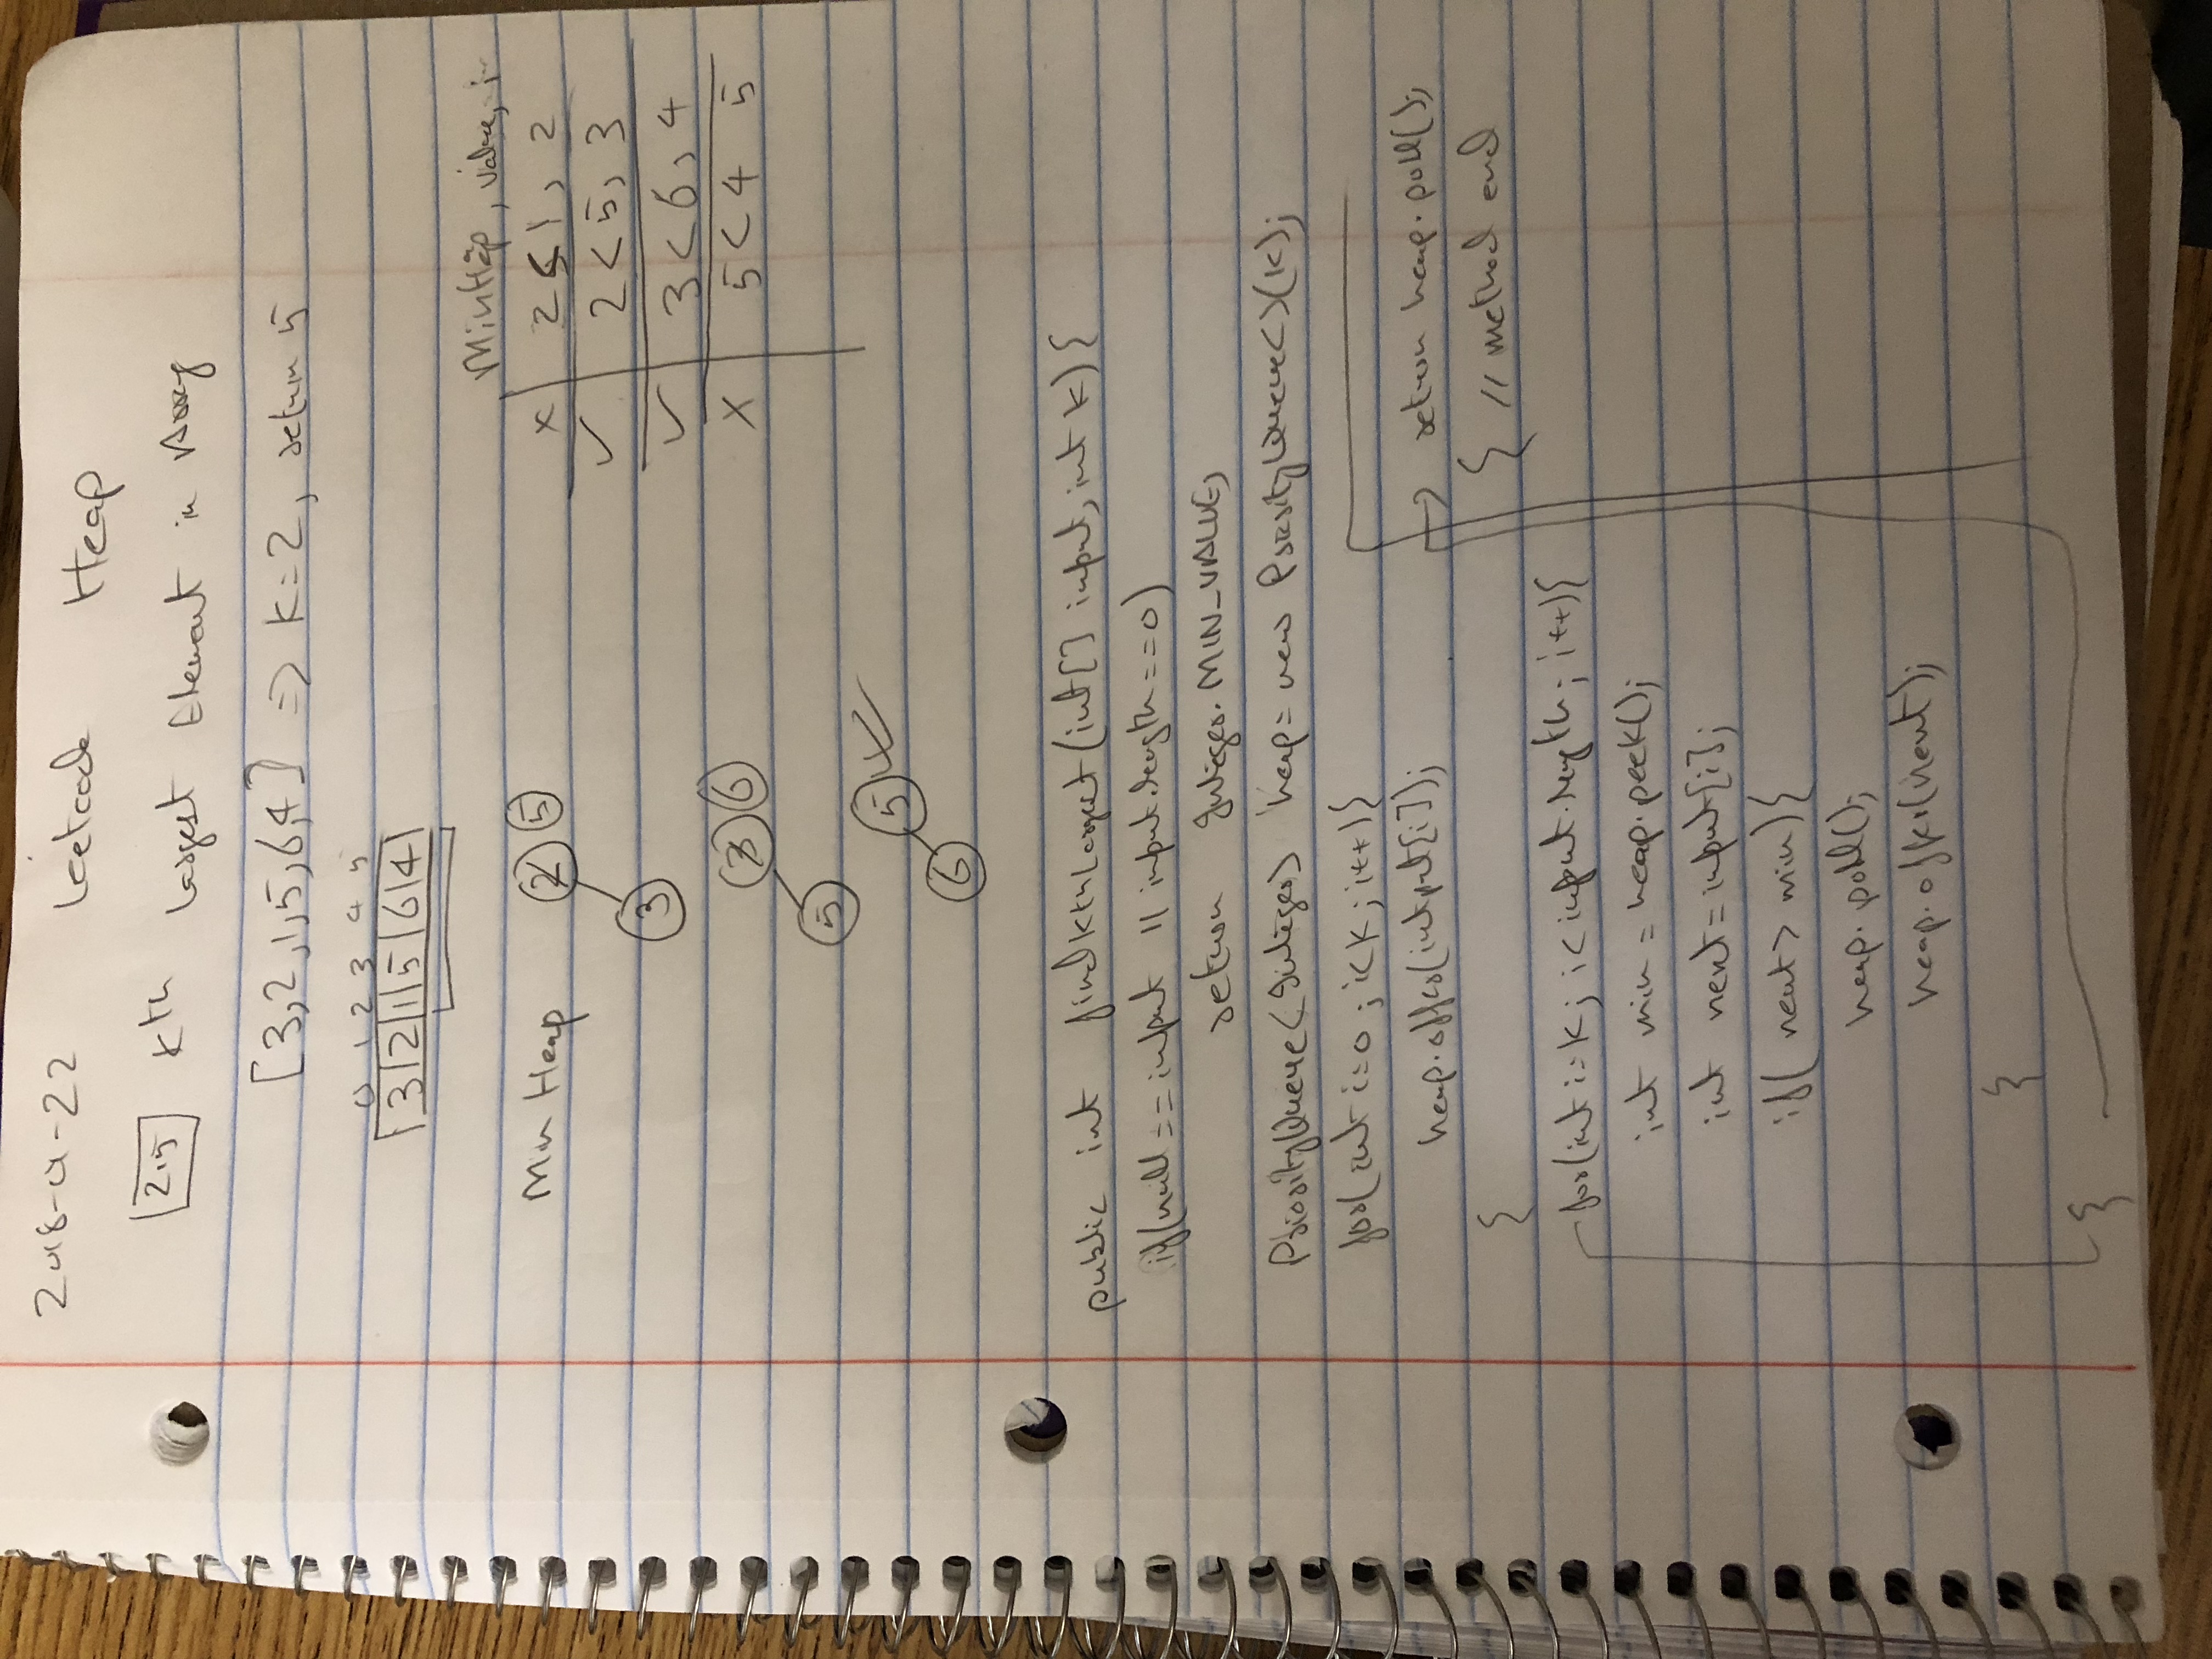 2018-01-22 Leetcode Heap
215 Kth Largest Element in Array
[3,2,1,5,6,4] => K=2, return 5
0 1 2 3 4 5
3 | 2 | 1 | 5 | 6 | 4
MinHeap, value, i
Min Heap 2 5
3
x 2<1, 2
✓ 2<5, 3
✓ 3<6, 4
x 5<4 5
3 6
5
5 ✓
6
public int findKthLargest(int[] input, int K){
if(null==input || input.length==0)
return Integer.MIN_VALUE;
PriorityQueue<Integer> heap= new PriorityQueue<>(K);
for( int i=0 ; i<K ; i++){
heap.offer(intput[i]);
}
for(int i=K; i<input.length; i++){
int min = heap.peek();
int next=input[i];
if( next> min){
heap.poll();
heap.offer(next);
}
}
→ return heap.poll();
} // method end